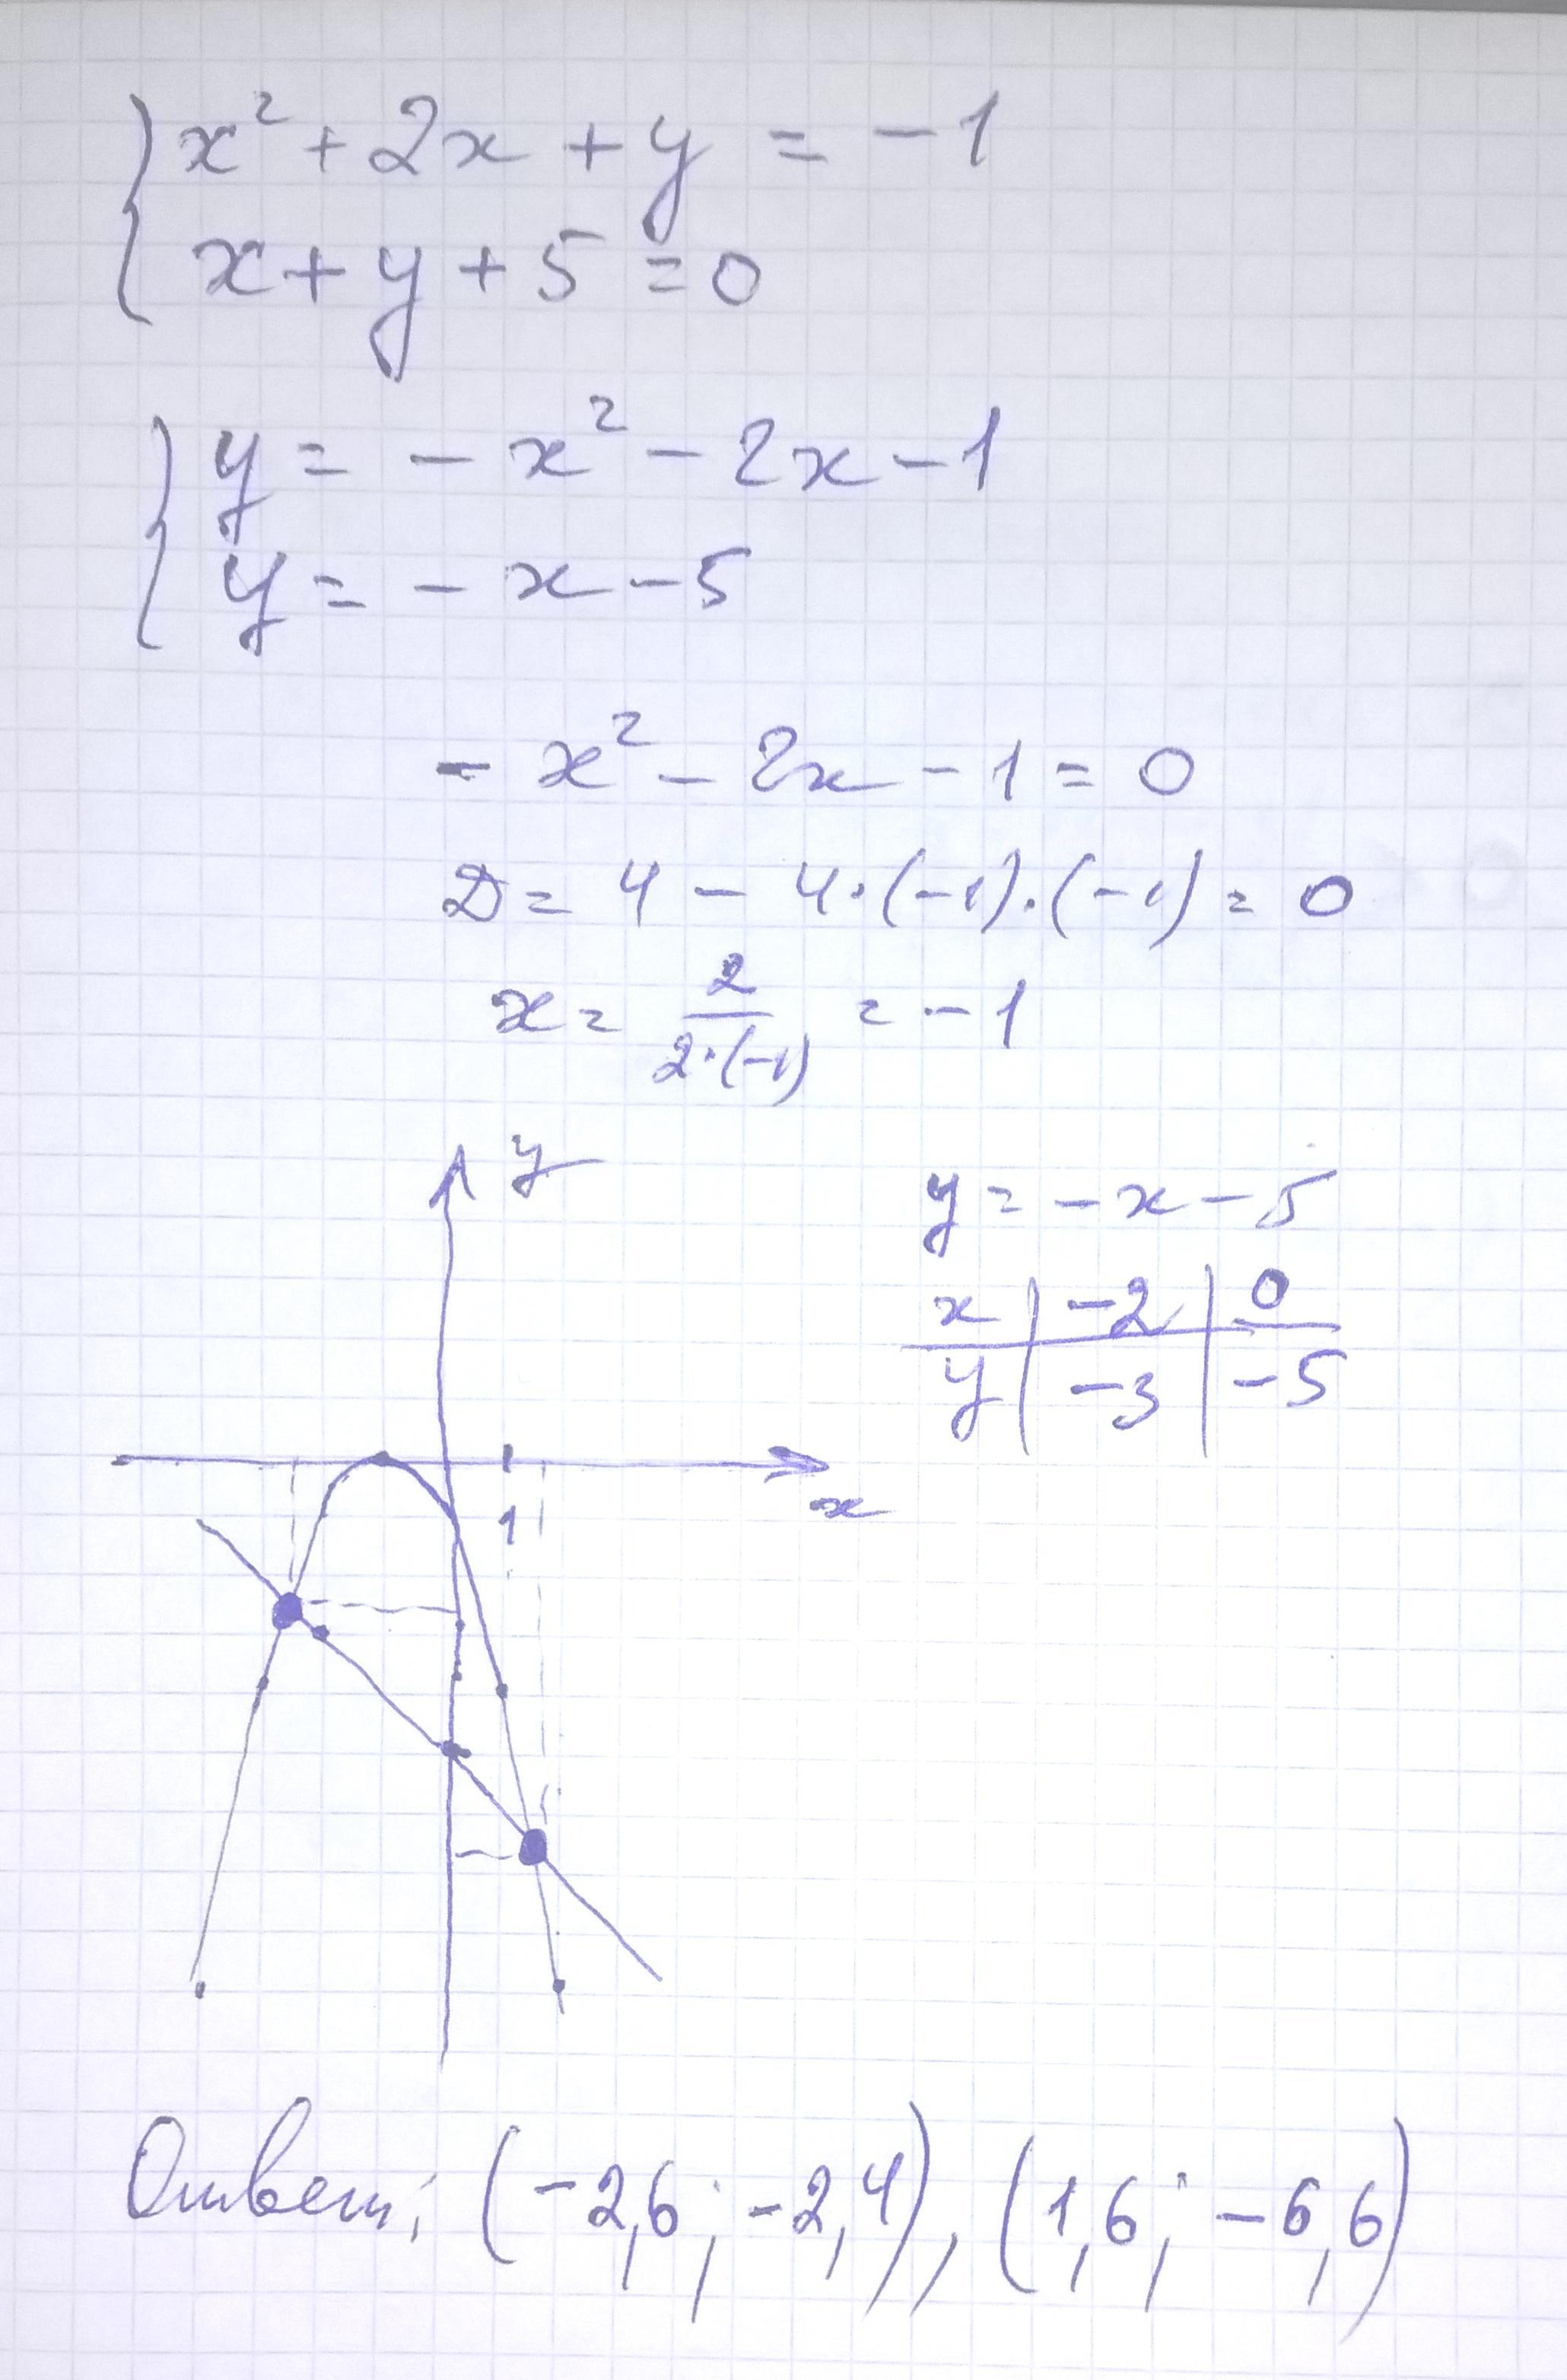 { x² + 2x + y = -1
x + y + 5 = 0
{ y = - x² - 2x - 1
y = - x - 5
- x² - 2x - 1 = 0
D = 4 - 4·(-1)·(-1) = 0
x = 2/(2·(-1)) = -1
y
y = - x - 5
x | -2 | 0
y | -3 | -5
x
1
Ответ: (-2,6; -2,4), (1,6; -6,6)